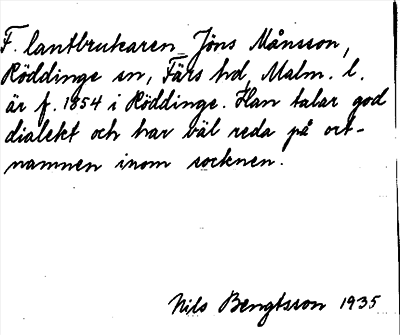 F. lantbrukaren Jöns Månsson,
Röddinge sn, Färs hd, Malm. l.
är f. 1854 i Röddinge. Han talar god
dialekt och har väl reda på ort-
namnen inom socknen.
Nils Bengtsson 1935